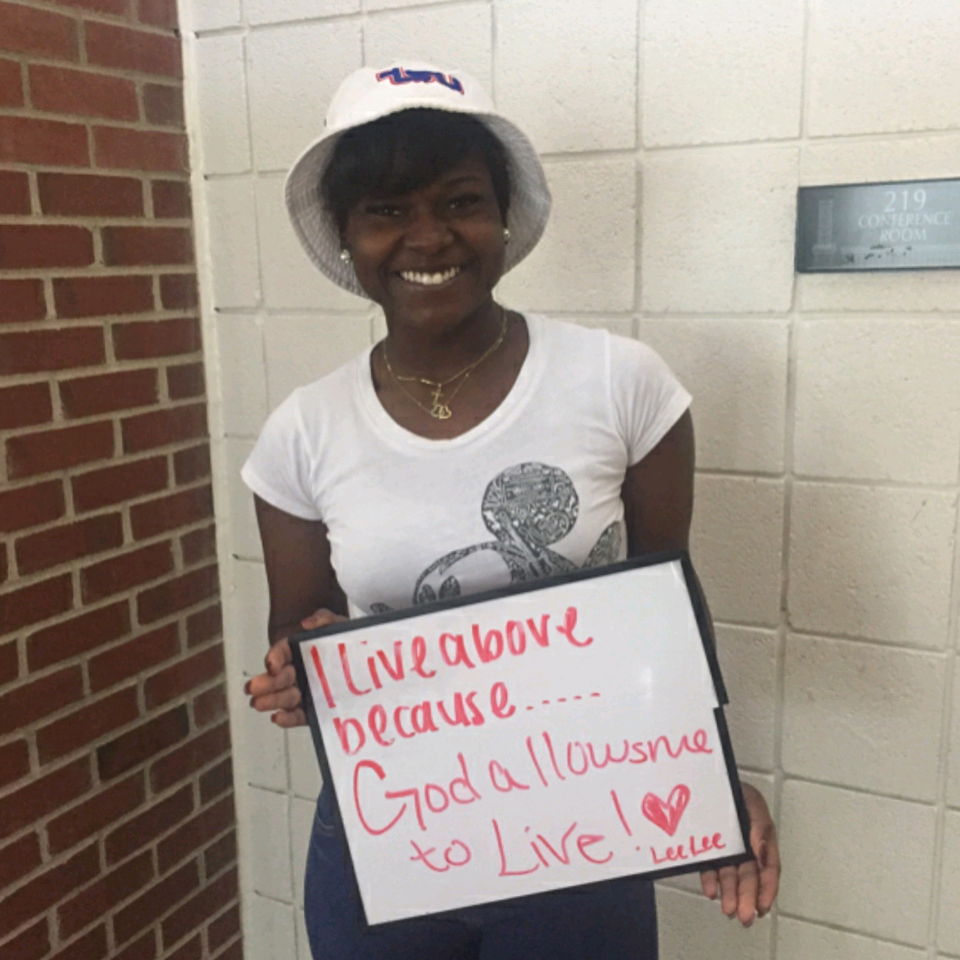 219
CONFERENCE
ROOM
I Live above
because.....
God allows me
to Live!
LeeLee